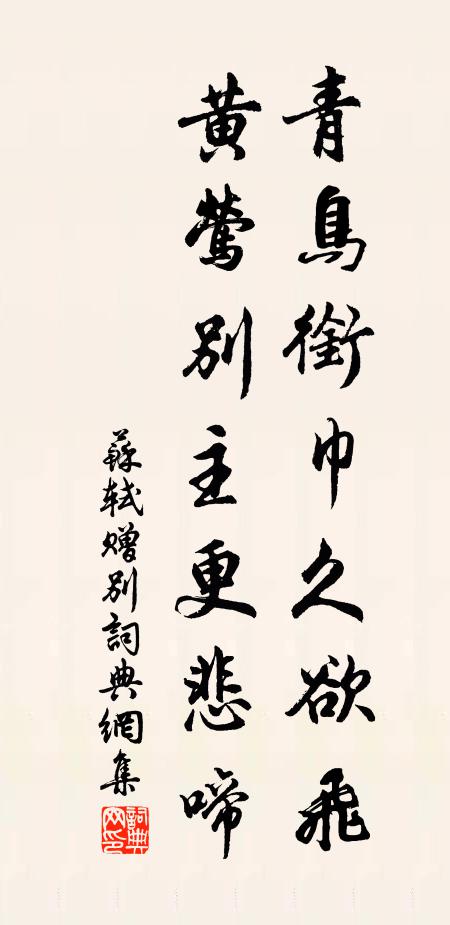 青鳥銜巾久欲飛
黃鶯別主更悲啼
蘇軾贈別詞典網集
詞典网印